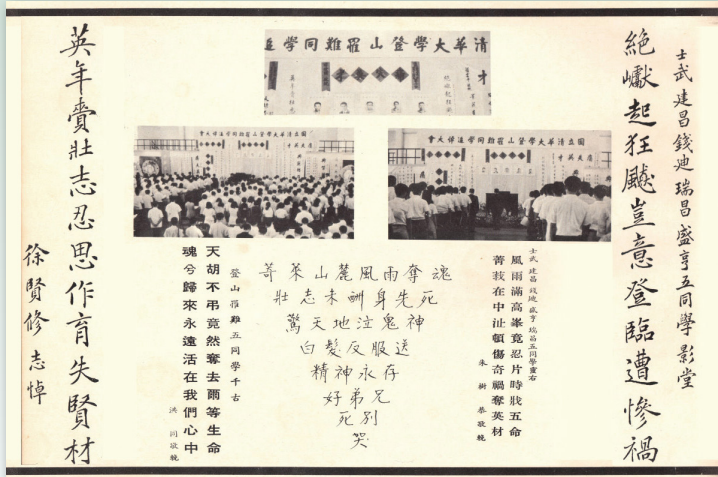 士武建昌錢迪瑞昌盛亨五同學影堂
絕巘起狂飈豈意登臨遭慘禍
清華大學登山罹難同學追
國立清華大學登山罹難同學追悼大會
國立清華大學登山罹難同學追悼大會
士武 建昌 錢迪 盛亨 瑞昌五同學靈右
風雨滿高峯竟忍片時戕五命
菁莪在中沚頓傷奇禍奪英材
朱樹恭敬輓
奇萊山麓風雨奪魂
壯志未酬身先死
驚天地泣鬼神
白髮反服送
精神永存
好弟兄
死別
哭
登山罹難五同學千古
天胡不弔竟然奪去爾等生命
魂兮歸來永遠活在我們心中
洪同敬輓
英年賷壯志忍思作育失賢材
徐賢修志悼